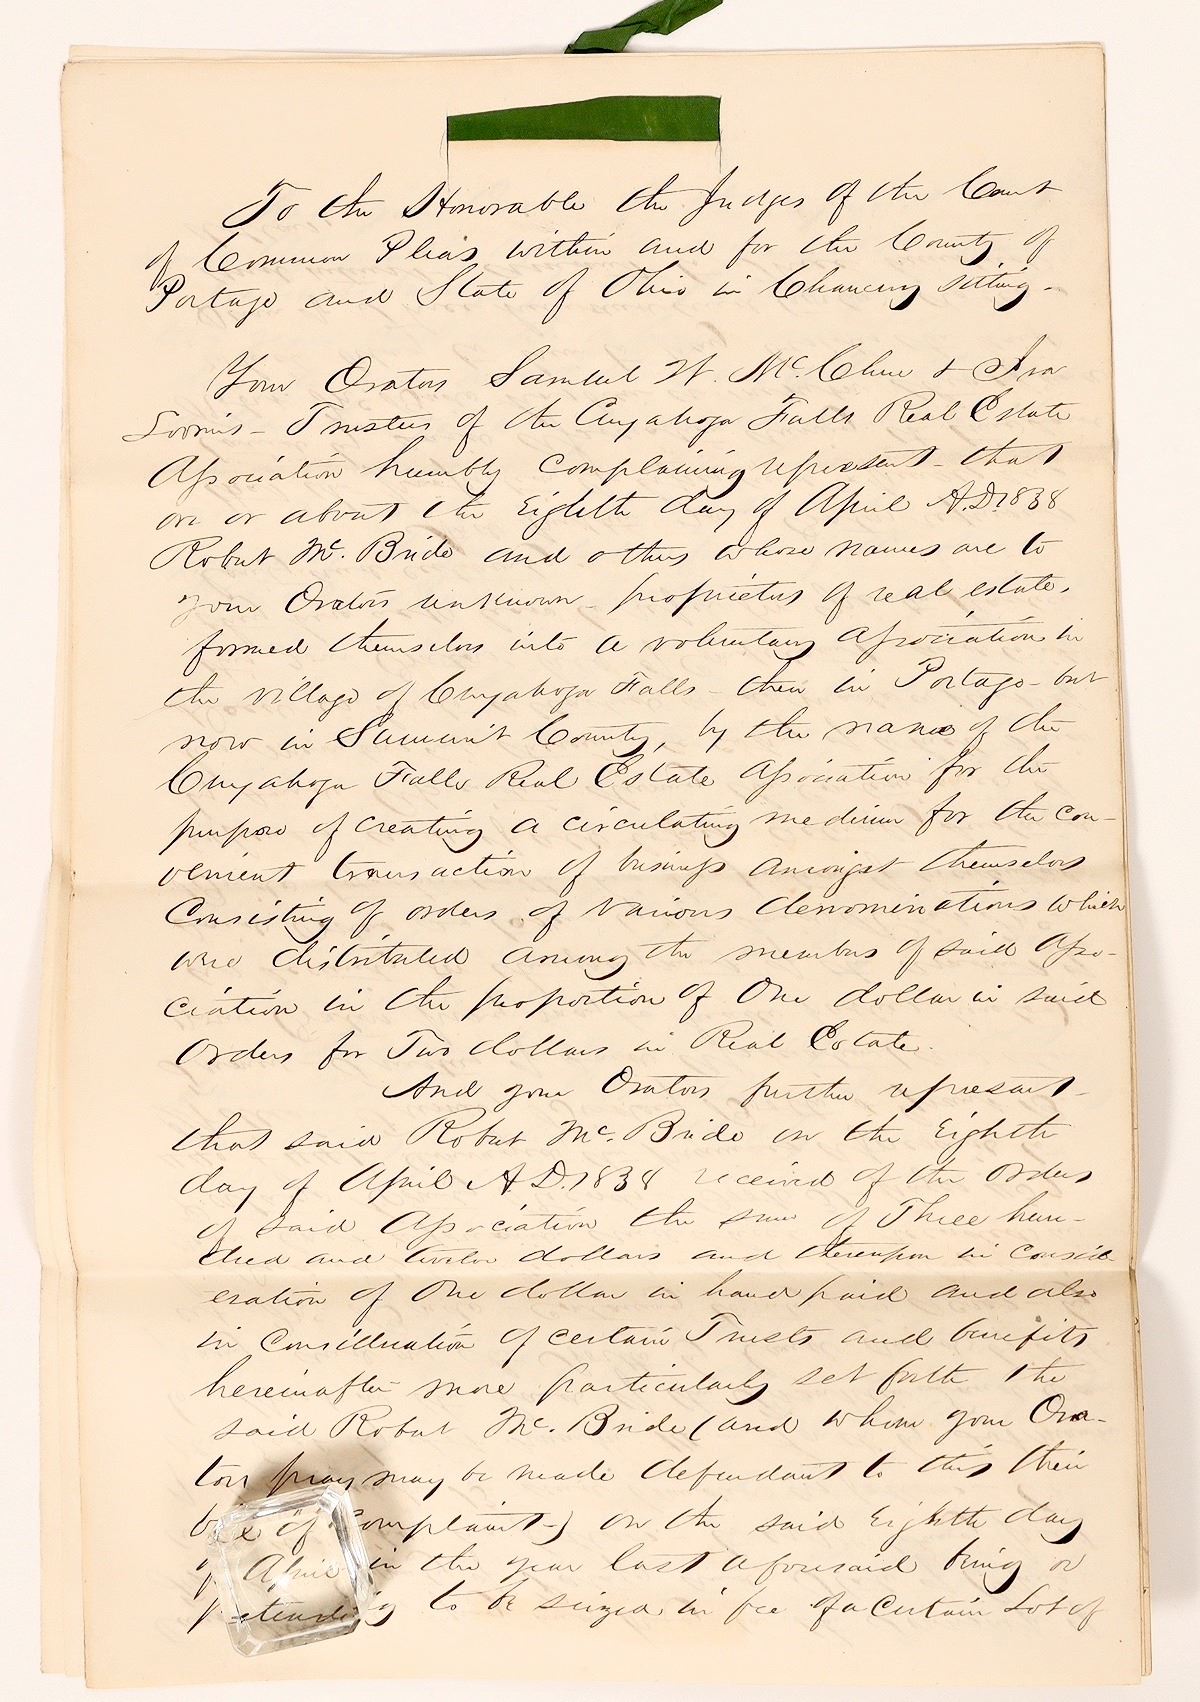 To the Honorable the Judges of the Court
of Common Pleas within and for the County of
Portage and State of Ohio in Chancery sitting -
Your Orators Samuel W. McClure & Ira
Loomis - Trustees of the Cuyahoga Falls Real Estate
Association humbly complaining represent - that
on or about the Eighth day of April A.D. 1838
Robert Mc. Bride and others whose names are to
your Orators unknown - proprietors of real estate,
formed themselves into a voluntary Association in
the village of Cuyahoga Falls - then in Portage - but
now in Summit County, by the name of the
Cuyahoga Falls Real Estate Association for the
purpose of creating a circulating medium for the con-
venient transaction of business amongst themselves
Consisting of orders of various denominations which
were distributed among the members of said Asso-
ciation in the proportion of One dollar in said
Orders for Two dollars in Real Estate.
And your Orators further represent -
that said Robert Mc. Bride on the Eighth
day of April A.D. 1838 received of the orders
of said Association the sum of Three hun-
dred and twelve dollars and thereupon in consid-
eration of One dollar in hand paid and also
in consideration of certain Trusts and benefits
hereinafter more particularly set forth the
said Robert Mc. Bride (and whom your Ora-
tors pray may be made defendant to this their
bill of Complaint -) on the said Eighth day
of April in the year last aforesaid being or
pretending to be seized in fee of a Certain Lot of